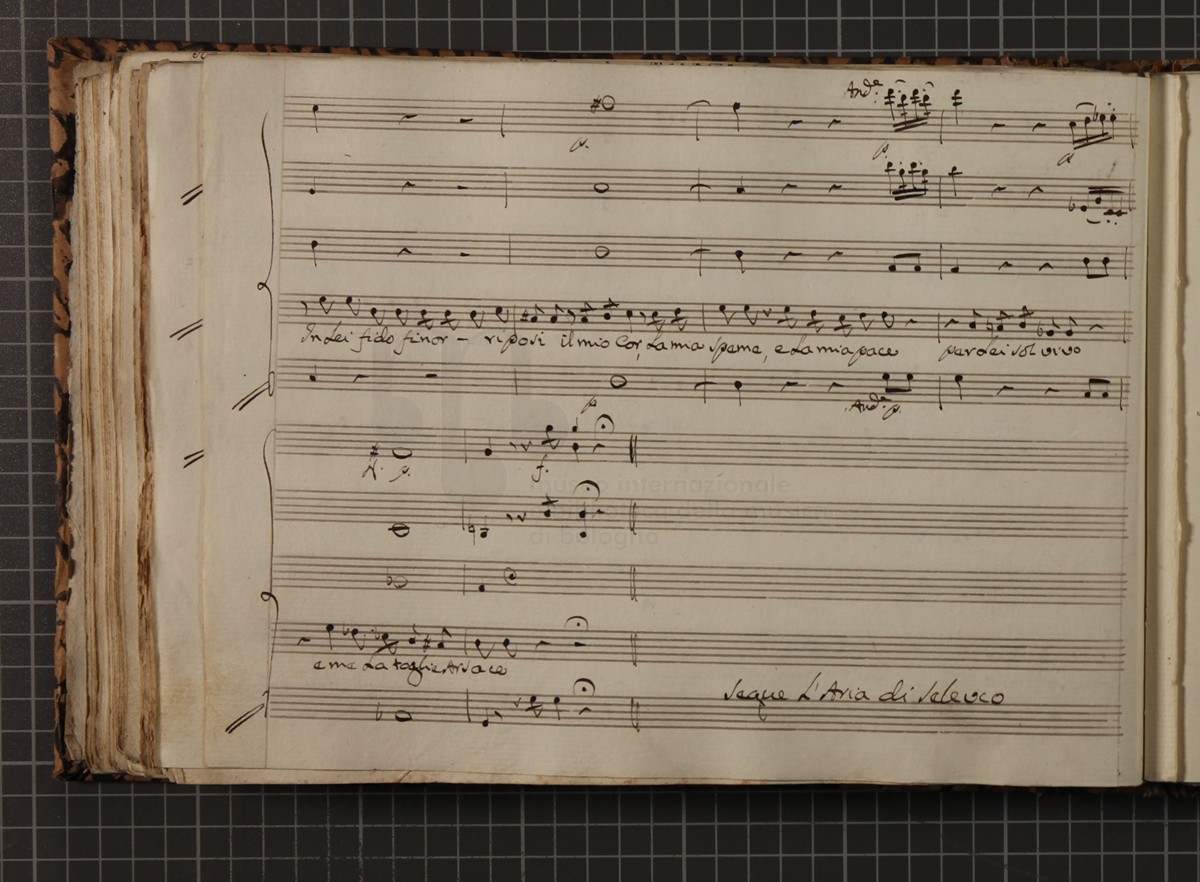 And.e
p.
p.
p
In Lei fido finor – riposi il mio Cor, La mia speme, e La mia pace per Lei sol vivo
p
And.e p.
p.
f.
museo internazionale
e biblioteca della musica
di bologna
e me La toglie Arsace
Segue L'Aria di Seleuco